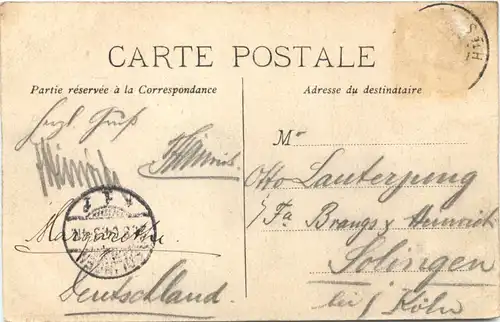 CARTE POSTALE
Partie réservée à la Correspondance
Adresse du destinataire
Herzl. Gruß
Heinrichs
Margarethe
Deutschland
M^r
Otto Lauterjung
i/Fa Brangs & Heinrich
Solingen
bei / Köln